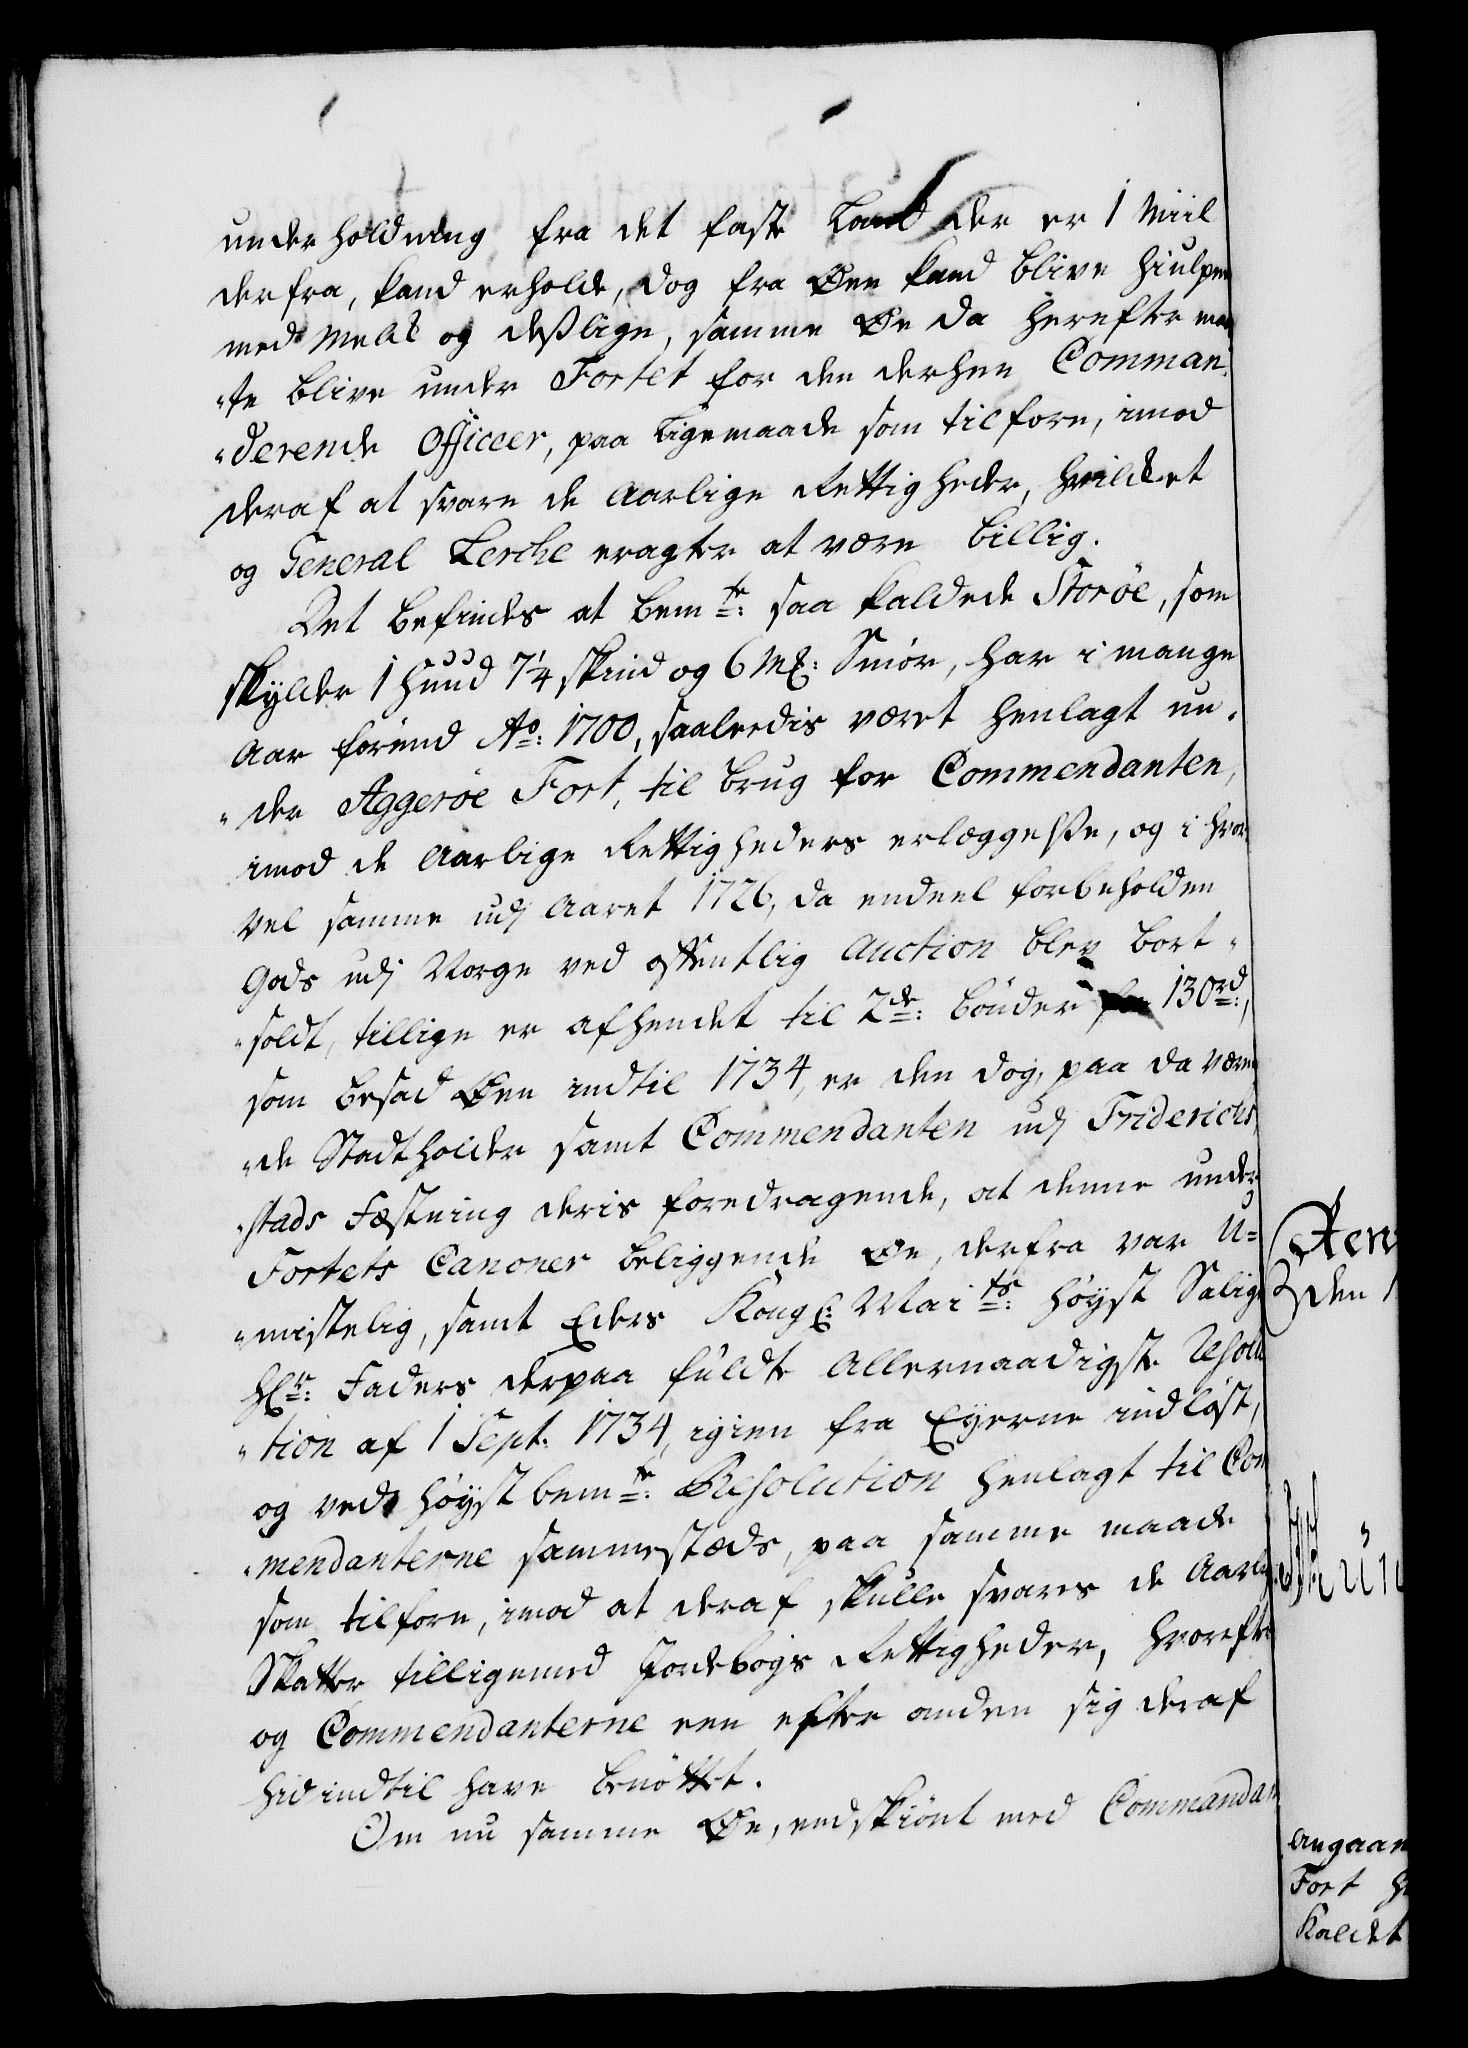 underholdning fra det faste Land der er 1 Miil
derfra, kand erholde, dog fra Øen kand blive hiulpen
med Melk og deslige, samme Øe da herefter maa¬
"te blive under Fortet for den derhen Comman¬
"derende Officeer, paa ligemaade som tilforn, imod
deraf at svare de Aarlige Rettigheder, hvilket
og General Lerche eragter at være billig.
Det befindes at bemte: saa kaldede Storøe, som
skylder 1 Huud 7¼ skind og 6 Mk: Smør, har i mange
Aar forend Ao: 1700, saaledis været henlagt un¬
"der Aggerøe Fort, til brug for Commendanten,
imod de Aarlige Rettigheders erlæggelse, og i hvor
vel samme udj Aaret 1726, da endeel forbeholden
Gods udj Norge ved offentlig Auction blev bort¬
"soldt, tillige er afhendet til 2de: bønder for 130rd:,
som besad Øen indtil 1734, er den dog, paa da væren
"de Stadtholder samt Commendanten udj Friderichs¬
"stads Fæstning deris foredragende, at denne under
Fortets Canoner beliggende Øe, derfra var U=
"mistelig, samt Eders Kongl: Maits: Høyst Salig
Hr: Faders derpaa fuldte Allernaadigste Resolu
"tion af 1 Sept: 1734, igien fra Eyerne indløst,
og ved høystbemte: Resolution henlagt til Com
"mendanterne sammestæds, paa samme maade
som tilforn, imod at deraf skulle svares de Aarlig
Skatter tilligemed Jordebogs Rettigheder, hvorefter
og Commendanterne een efter anden sig deraf
hidindtil have benøttet.
Om nu samme Øe, endskiønt med Commandan
den
angaaen
Fort
Kaldet